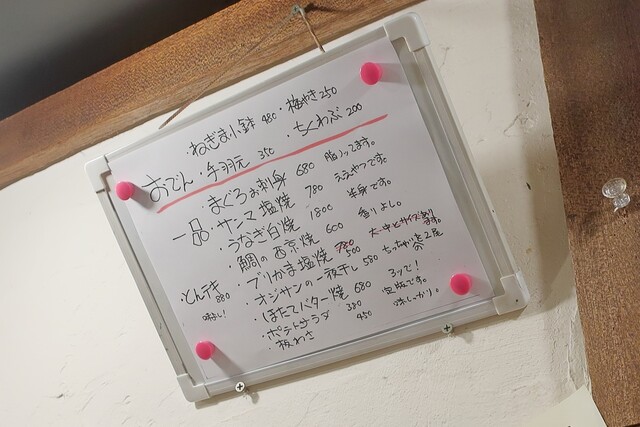 ねぎま小鉢 480 ・梅やき 250
おでん ・手羽元 350 ・ちくわぶ 200
一品 ・まぐろお刺身 680 脂ノッてます。
・サンマ塩焼 780 ええやつです。
・うなぎ白焼 1800 半身です。
・鯛の西京焼 600 香りよし
・ブリかま塩焼 500 大・中とサイズ
・オジサンの一夜干し 580 ちっちゃいを二尾
・ほたてバター焼 680 3ッで!
・ポテトサラダ 380 定版です。
・板わさ 450 味しっかり。
・とんテキ 880
味よし!